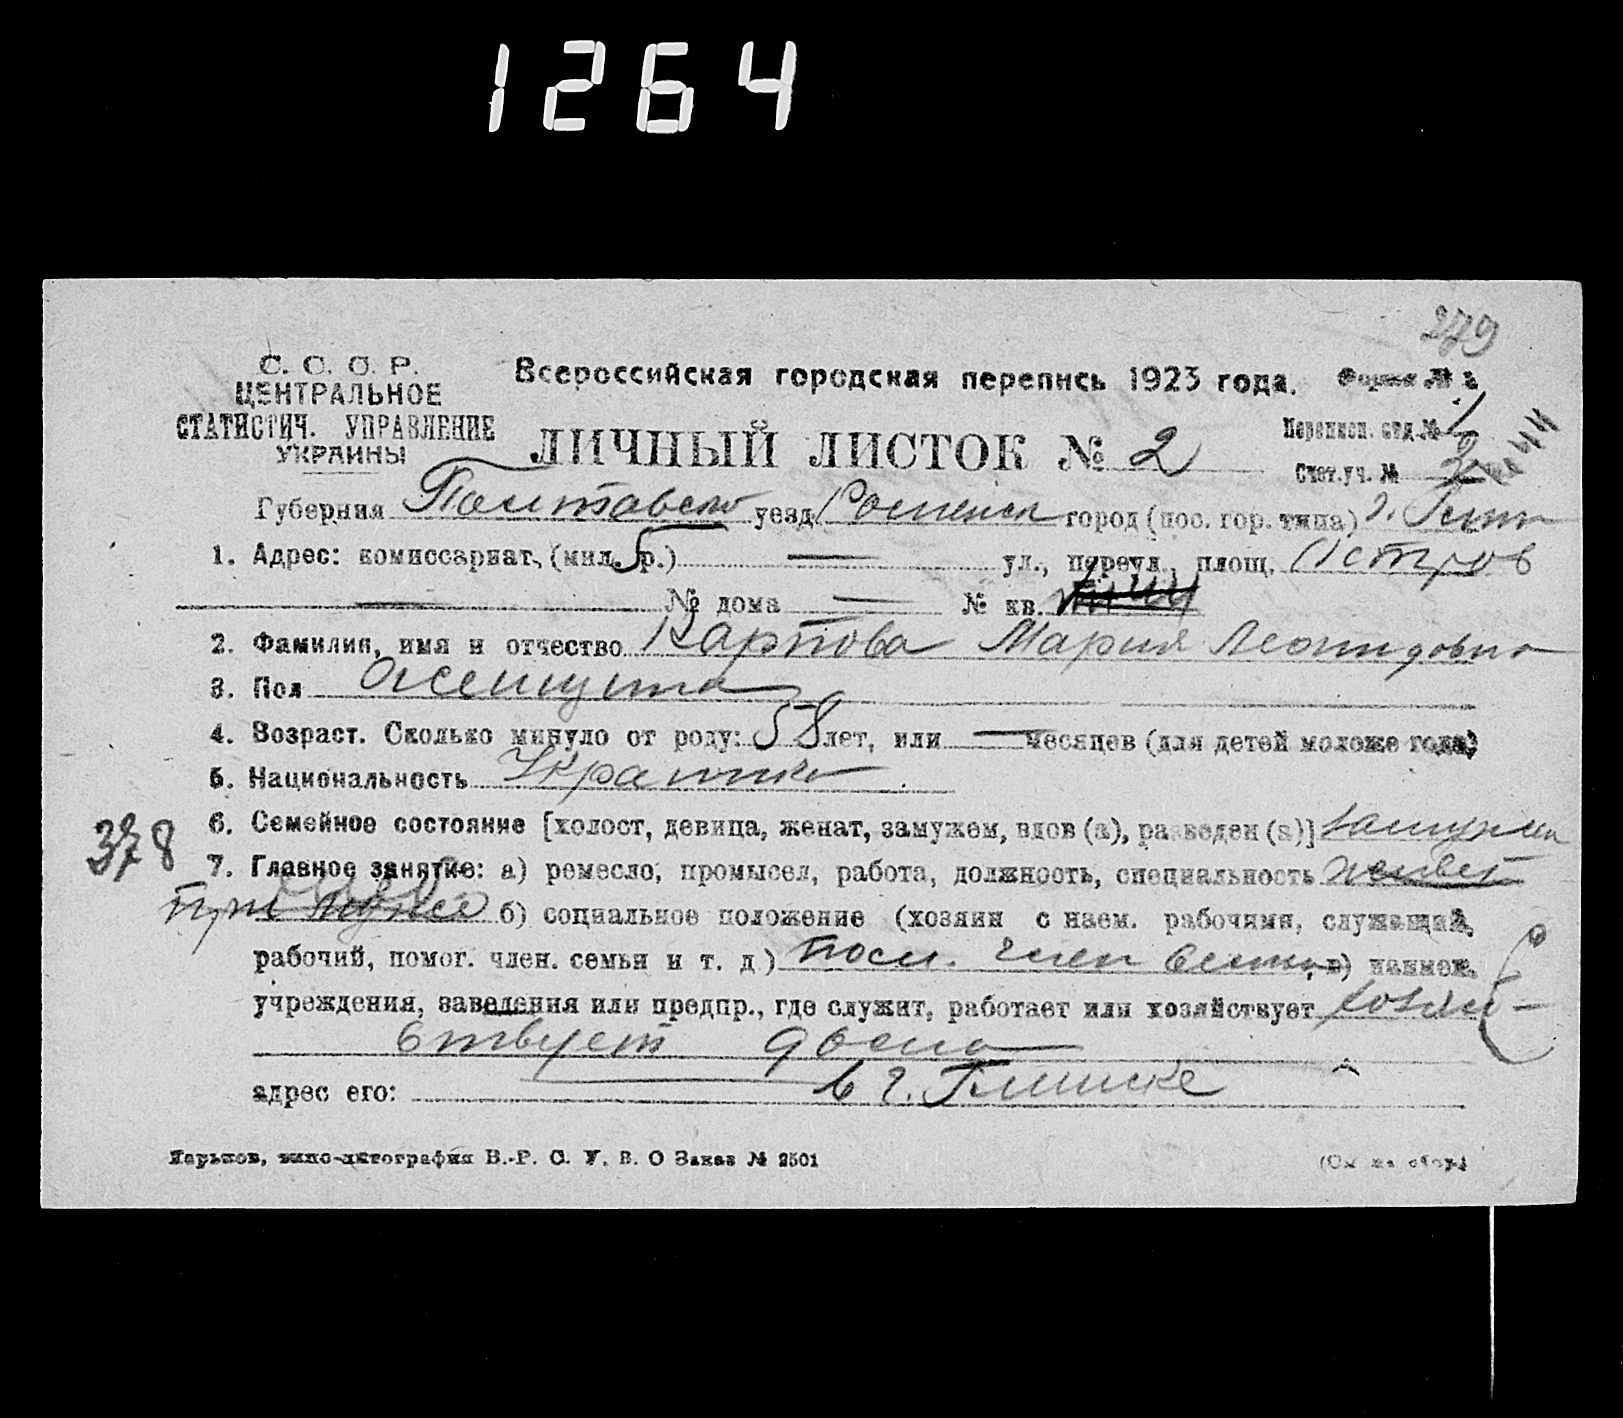 1264
279
С. С. С. Р.
ЦЕНТРАЛЬНОЕ
СТАТИСТИЧ. УПРАВЛЕНИЕ
УКРАИНЫ
Всероссийская городская перепись 1923 года.
Форма № 2
ЛИЧНЫЙ ЛИСТОК № 2
Переписн. отд. № 1
Счет. уч. №
Губерния Полтавско уезд Роменск город (пос. гор. типа) г.
1. Адрес: комиссариат, (мил. р.) 5 — ул., переул., площ. Остров
— № дома — № кв.
2. Фамилия, имя и отчество Карпова Мария Леонидовна
3. Пол Женщина
4. Возраст. Сколько минуло от роду: 58 лет, или — месяцев (для детей моложе года)
5. Национальность Украинка
378
6. Семейное состояние [холост, девица, женат, замужем, вдов (а), разведен (а)] замужем
7. Главное занятие: а) ремесло, промысел, работа, должность, специальность живет
при муже б) социальное положение (хозяин с наем. рабочими, служащий,
рабочий, помог. член. семьи и т. д) пом. член семьи в) наимен.
учреждения, заведения или предпр., где служит, работает или хозяйствует хозяй-
ствует дома
адрес его: в г. Глинске
Харьков, типо-литография В.-Р. С. У. В. О Заказ № 2501
(См на обор.)